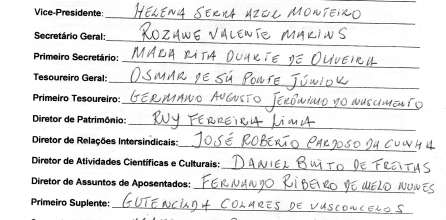 Vice-Presidente: HELENA SERRA AZUL MONTEIRO
Secretário Geral: ROZANE VALENTE MARINS
Primeiro Secretário: MARA RITA DUARTE DE OLIVEIRA
Tesoureiro Geral: OSMAR DE SÁ PONTE JÚNIOR
Primeiro Tesoureiro: GERMANO AUGUSTO JERÔNIMO DO NASCIMENTO
Diretor de Patrimônio: RUY FERREIRA LIMA
Diretor de Relações Intersindicais: JOSÉ ROBERTO CARDOSO DA CUNHA
Diretor de Atividades Científicas e Culturais: DANIEL BRITO DE FREITAS
Diretor de Assuntos de Aposentados: FERNANDO RIBEIRO DE MELO NUNES
Primeiro Suplente: COLARES DE VASCONCELOS